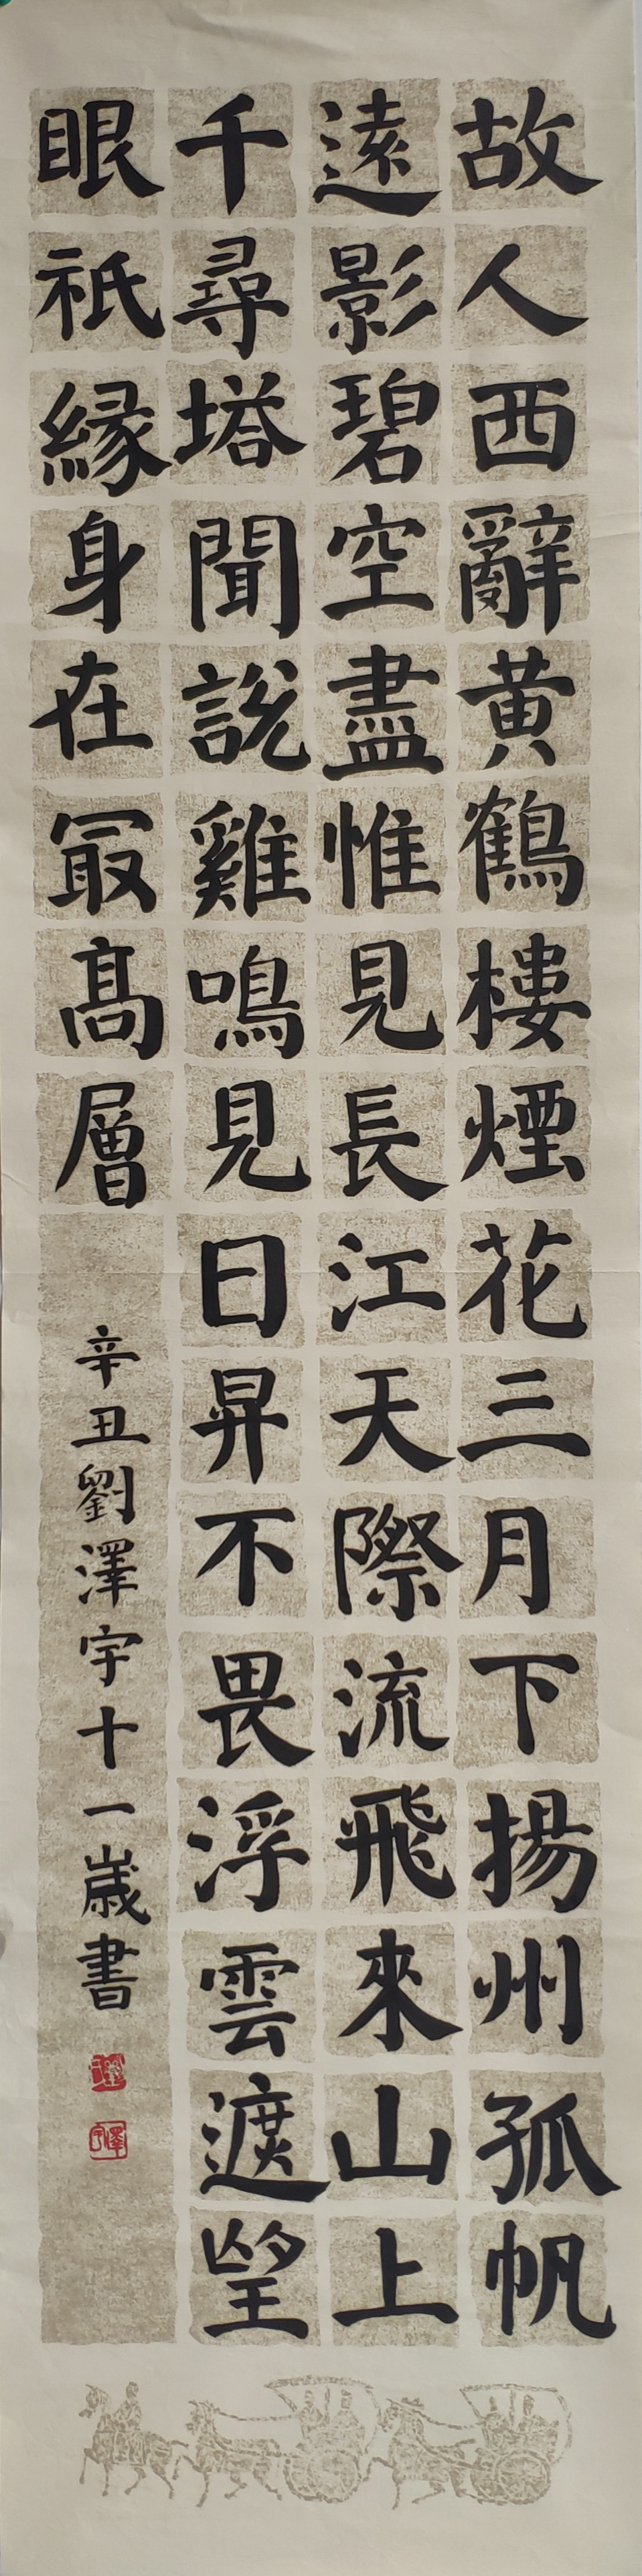 故人西辭黄鶴樓煙花三月下揚州孤帆
遠影碧空盡惟見長江天際流飛來山上
千尋塔聞説雞鳴見日昇不畏浮雲遮望
眼祇縁身在冣髙層
辛丑劉澤宇十一歲書